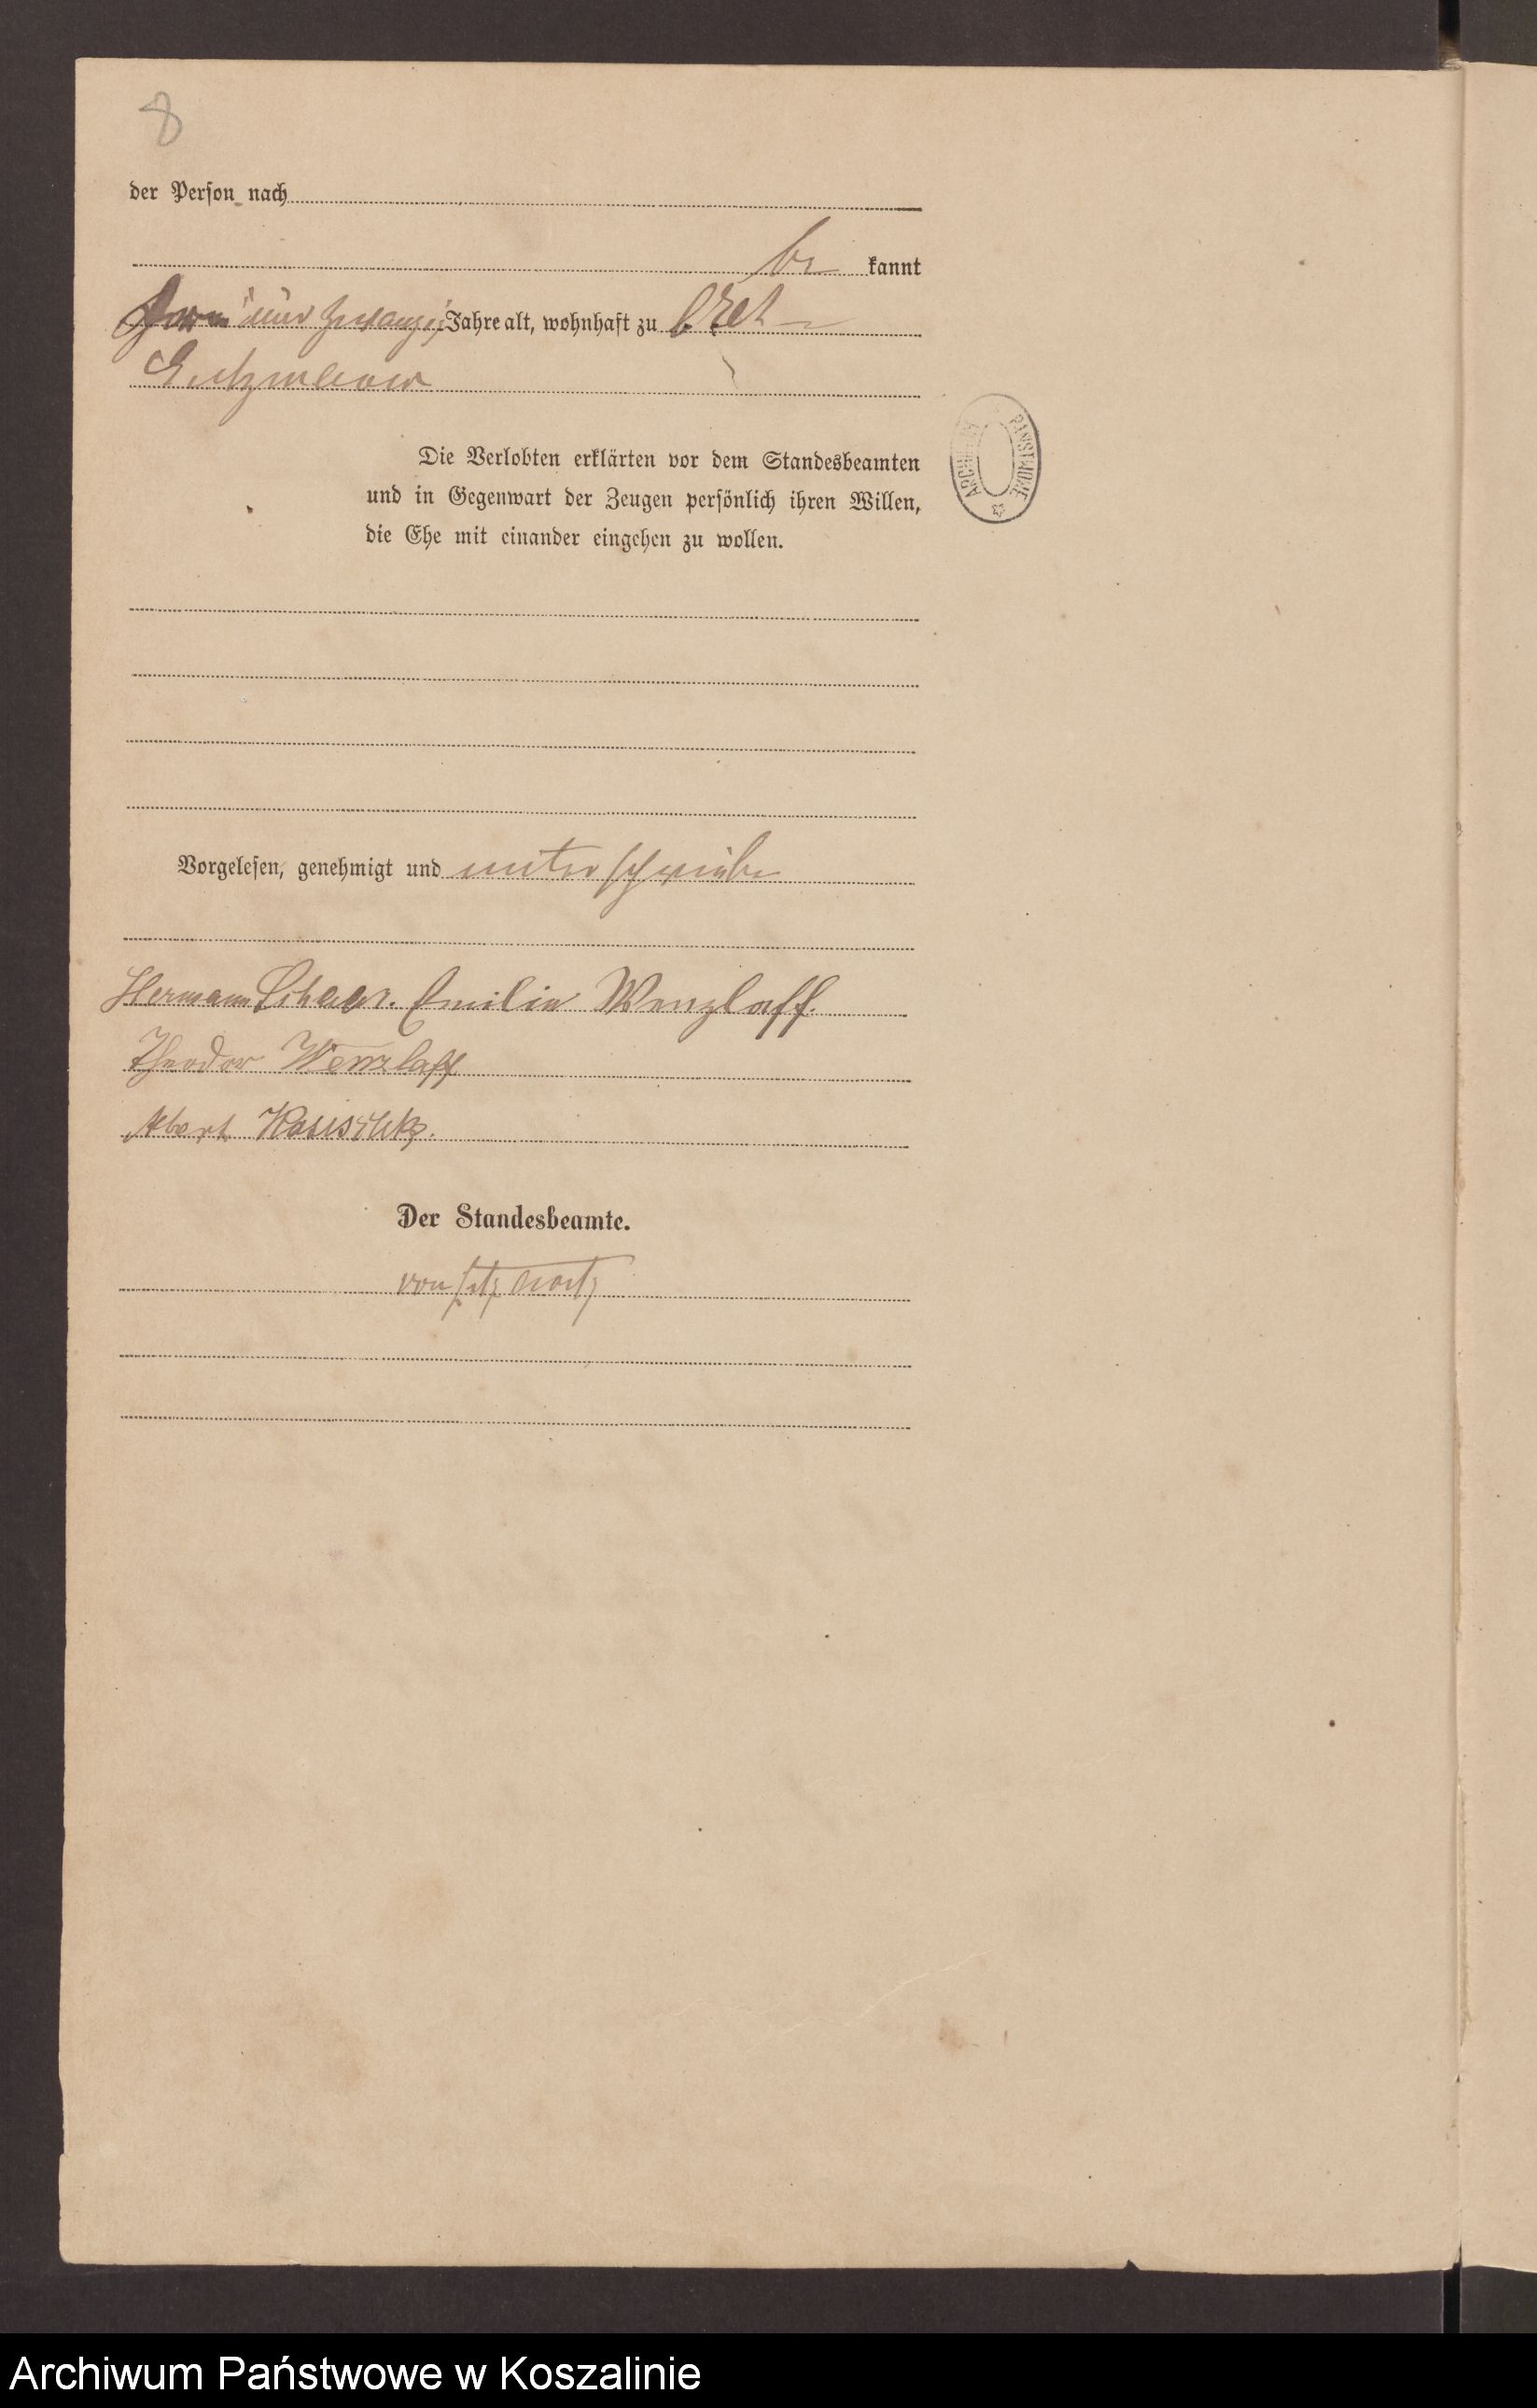 8
der Person nach
be kannt
und zwanzig Jahre alt, wohnhaft zu
Die Verlobten erklärten vor dem Standesbeamten
und in Gegenwart der Zeugen persönlich ihren Willen,
die Ehe mit einander eingehen zu wollen.
ARCHIWUM PAŃSTWOWE
Vorgelesen, genehmigt und unterschrieben
Hermann Schaar. Emilie Wenzlaff.
Theodor Wenzlaff
Albert
Der Standesbeamte.
von
Archiwum Państwowe w Koszalinie